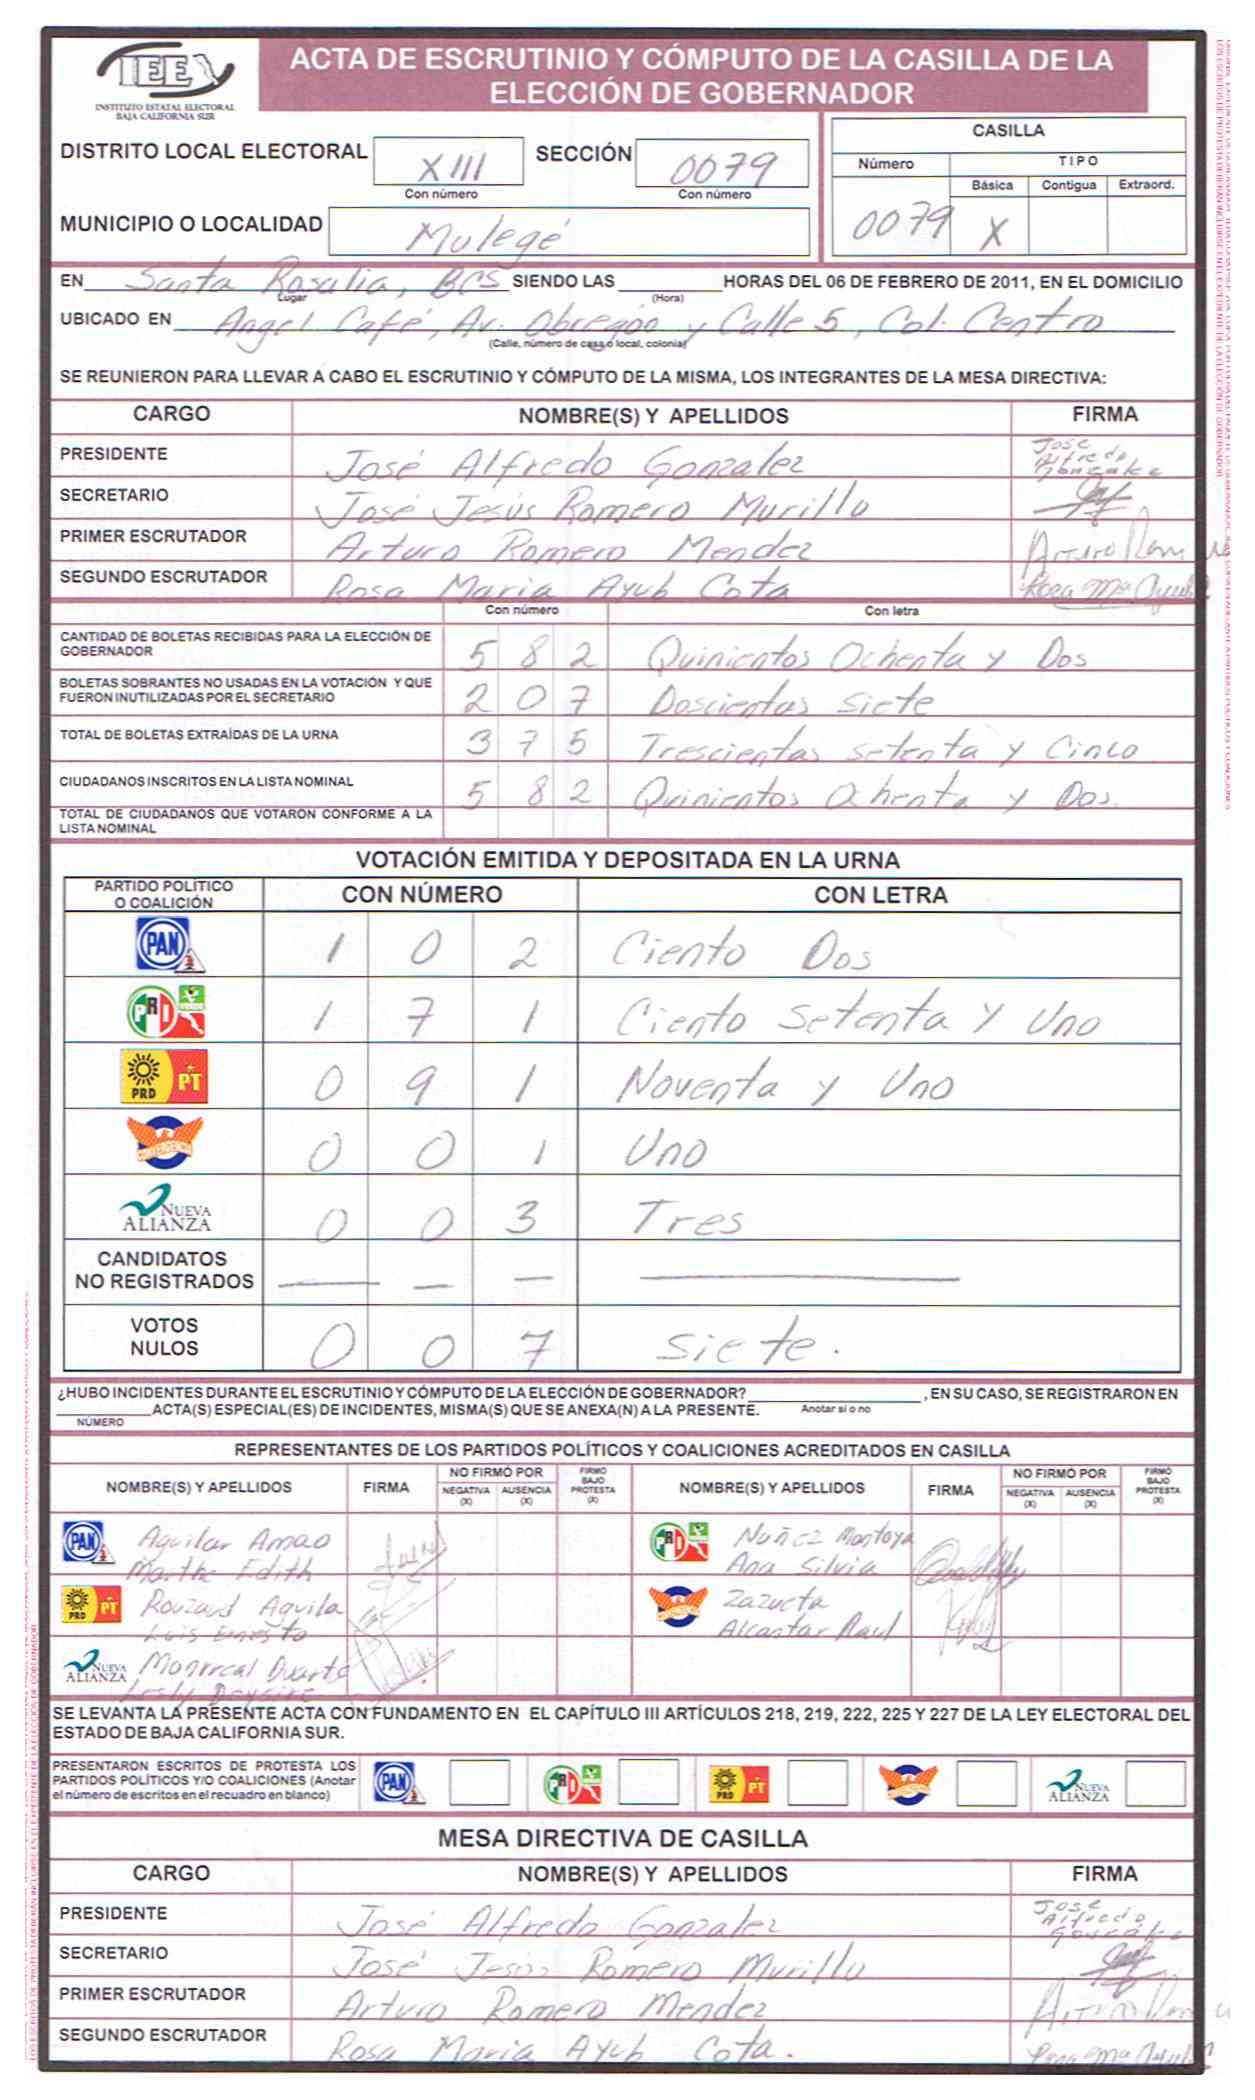 IEE
INSTITUTO ESTATAL ELECTORAL
BAJA CALIFORNIA SUR
ACTA DE ESCRUTINIO Y CÓMPUTO DE LA CASILLA DE LA
ELECCIÓN DE GOBERNADOR
DISTRITO LOCAL ELECTORAL XIII SECCIÓN 0079
Con número Con número
MUNICIPIO O LOCALIDAD Mulegé
CASILLA
Número TIPO
Básica Contigua Extraord.
0079 X
EN Santa Rosalia, BCS SIENDO LAS HORAS DEL 06 DE FEBRERO DE 2011, EN EL DOMICILIO
Lugar (Hora)
UBICADO EN Angel Café, Av. Obregón y Calle 5, Col. Centro
(Calle, número de casa o local, colonia)
SE REUNIERON PARA LLEVAR A CABO EL ESCRUTINIO Y CÓMPUTO DE LA MISMA, LOS INTEGRANTES DE LA MESA DIRECTIVA:
CARGO NOMBRE(S) Y APELLIDOS FIRMA
PRESIDENTE José Alfredo Gonzalez
SECRETARIO José Jesús Romero Murillo
PRIMER ESCRUTADOR Arturo Romero Mendez
SEGUNDO ESCRUTADOR Rosa Maria Ayub Cota
Con número Con letra
CANTIDAD DE BOLETAS RECIBIDAS PARA LA ELECCIÓN DE
GOBERNADOR 5 8 2 Quinientos Ochenta y Dos
BOLETAS SOBRANTES NO USADAS EN LA VOTACIÓN Y QUE
FUERON INUTILIZADAS POR EL SECRETARIO 2 0 7 Doscientas Siete
TOTAL DE BOLETAS EXTRAÍDAS DE LA URNA 3 7 5 Trescientas setenta y Cinco
CIUDADANOS INSCRITOS EN LA LISTA NOMINAL 5 8 2 Quinientos Ochenta y Dos.
TOTAL DE CIUDADANOS QUE VOTARON CONFORME A LA
LISTA NOMINAL
VOTACIÓN EMITIDA Y DEPOSITADA EN LA URNA
PARTIDO POLÍTICO
O COALICIÓN CON NÚMERO CON LETRA
PAN 1 0 2 Ciento Dos
PRD VERDE 1 7 1 Ciento Setenta y Uno
PRD PT 0 9 1 Noventa y Uno
CONVERGENCIA 0 0 1 Uno
NUEVA ALIANZA 0 0 3 Tres
CANDIDATOS
NO REGISTRADOS
VOTOS
NULOS 0 0 7 Siete.
¿HUBO INCIDENTES DURANTE EL ESCRUTINIO Y CÓMPUTO DE LA ELECCIÓN DE GOBERNADOR? , EN SU CASO, SE REGISTRARON EN
ACTA(S) ESPECIAL(ES) DE INCIDENTES, MISMA(S) QUE SE ANEXA(N) A LA PRESENTE. Anotar sí o no
NÚMERO
REPRESENTANTES DE LOS PARTIDOS POLÍTICOS Y COALICIONES ACREDITADOS EN CASILLA
NOMBRE(S) Y APELLIDOS FIRMA NO FIRMÓ POR NEGATIVA (X) AUSENCIA (X) FIRMÓ BAJO PROTESTA (X) NOMBRE(S) Y APELLIDOS FIRMA NO FIRMÓ POR NEGATIVA (X) AUSENCIA (X) FIRMÓ BAJO PROTESTA (X)
PAN Aguilar Amao PRD Nuñez Montoya
Martha Edith Ana Silvia
PRD PT Rouzaud Aguila Zazueta
Luis Ernesto Alcantar Raul
NUEVA ALIANZA Monrreal Duarte
Lesly
SE LEVANTA LA PRESENTE ACTA CON FUNDAMENTO EN EL CAPÍTULO III ARTÍCULOS 218, 219, 222, 225 Y 227 DE LA LEY ELECTORAL DEL
ESTADO DE BAJA CALIFORNIA SUR.
PRESENTARON ESCRITOS DE PROTESTA LOS
PARTIDOS POLÍTICOS Y/O COALICIONES (Anotar
el número de escritos en el recuadro en blanco) PAN PRD PRD PT NUEVA ALIANZA
MESA DIRECTIVA DE CASILLA
CARGO NOMBRE(S) Y APELLIDOS FIRMA
PRESIDENTE José Alfredo Gonzalez
SECRETARIO José Jesús Romero Murillo
PRIMER ESCRUTADOR Arturo Romero Mendez
SEGUNDO ESCRUTADOR Rosa Maria Ayub Cota.